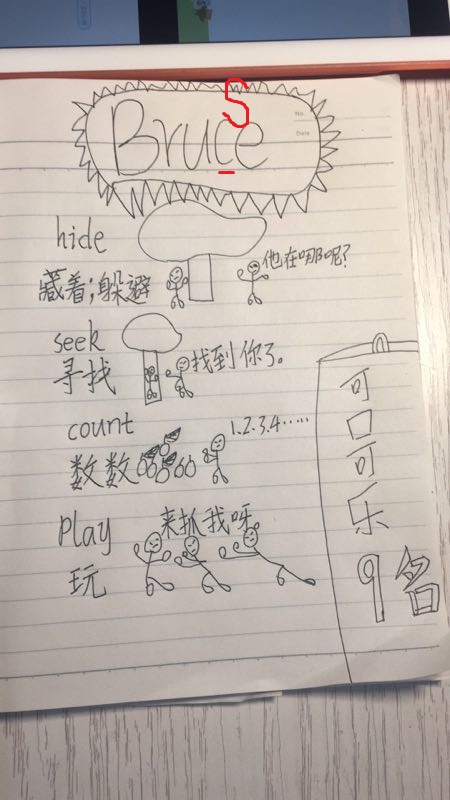 S
Bruce
No.
Date.
hide
藏着;躲避
他在哪呢?
seek
寻找
找到你了。
count
1.2.3.4……
数数
play
来抓我呀
玩
可口可乐
9名